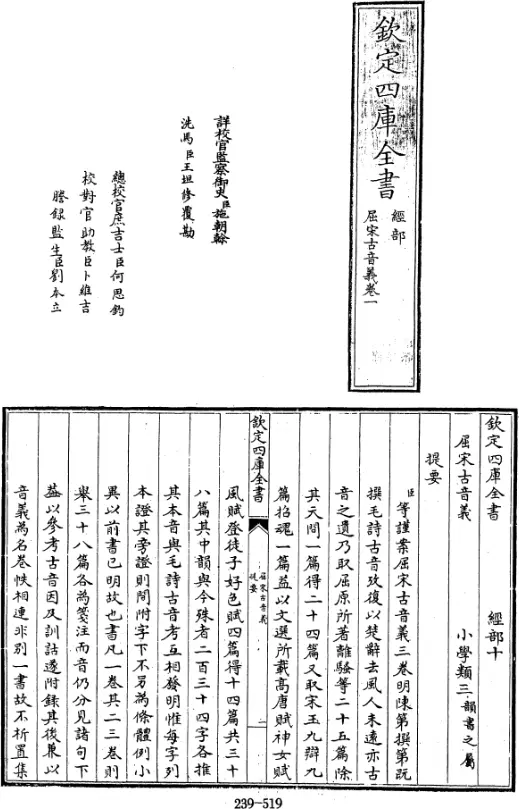 欽定四庫全書
經部
屈宋古音義卷一
詳校官監察御史臣施朝榦
洗馬臣王坦修覆勘
總校官庶吉士臣何思鈞
校對官助教臣卜維吉
謄錄監生臣劉本立
欽定四庫全書
經部十
屈宋古音義
小學類三韻書之屬
提要
臣等謹案屈宋古音義三卷明陳第撰第既
撰毛詩古音攷復以楚辭去風人未遠亦古
音之遺乃取屈原所著離騷等二十五篇除
其天問一篇得二十四篇又取宋玉九辯九
篇招魂一篇益以文選所載高唐賦神女賦
欽定四庫全書
屈宋古音義
提要
一
風賦登徒子好色賦四篇得十四篇共三十
八篇其中韻與今殊者二百三十四字各推
其本音與毛詩古音考互相發明惟每字列
本證其旁證則間附字下不另為條體例小
異以前書已明故也書凡一卷其二三卷則
舉三十八篇各為箋注而音仍分見諸句下
蓋以參考古音因及訓詁遂附錄其後兼以
音義為名卷帙相連非別一書故不析置集
239-519